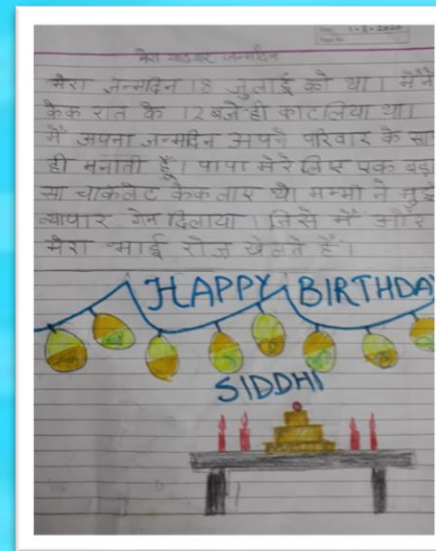 1-8-2020
मेरा यादगार जन्मदिन
मेरा जन्मदिन 18 जुलाई को था। मैंने
केक रात के 12 बजे ही काट लिया था।
मैं अपना जन्मदिन अपने परिवार के सा
ही मनाती हूँ। पापा मेरे लिए एक बड़ा
सा चाकलेट केक लाए थे। मम्मी ने मुझे
व्यापार गेम दिलाया। जिसे मैं और
मेरा भाई रोज खेलते हैं।
HAPPY BIRTHDAY
SIDDHI